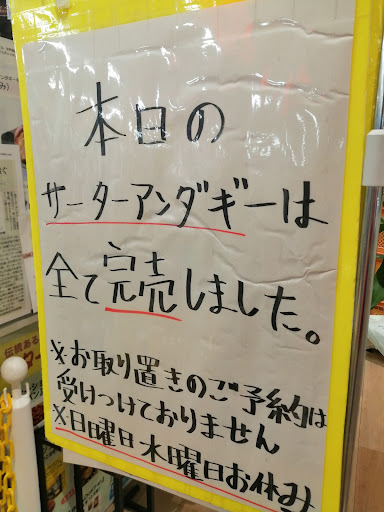 本日の
サーターアンダギーは
全て完売しました。
※お取り置きのご予約は
受けつけておりません
※日曜日 木曜日お休み
伝統ある